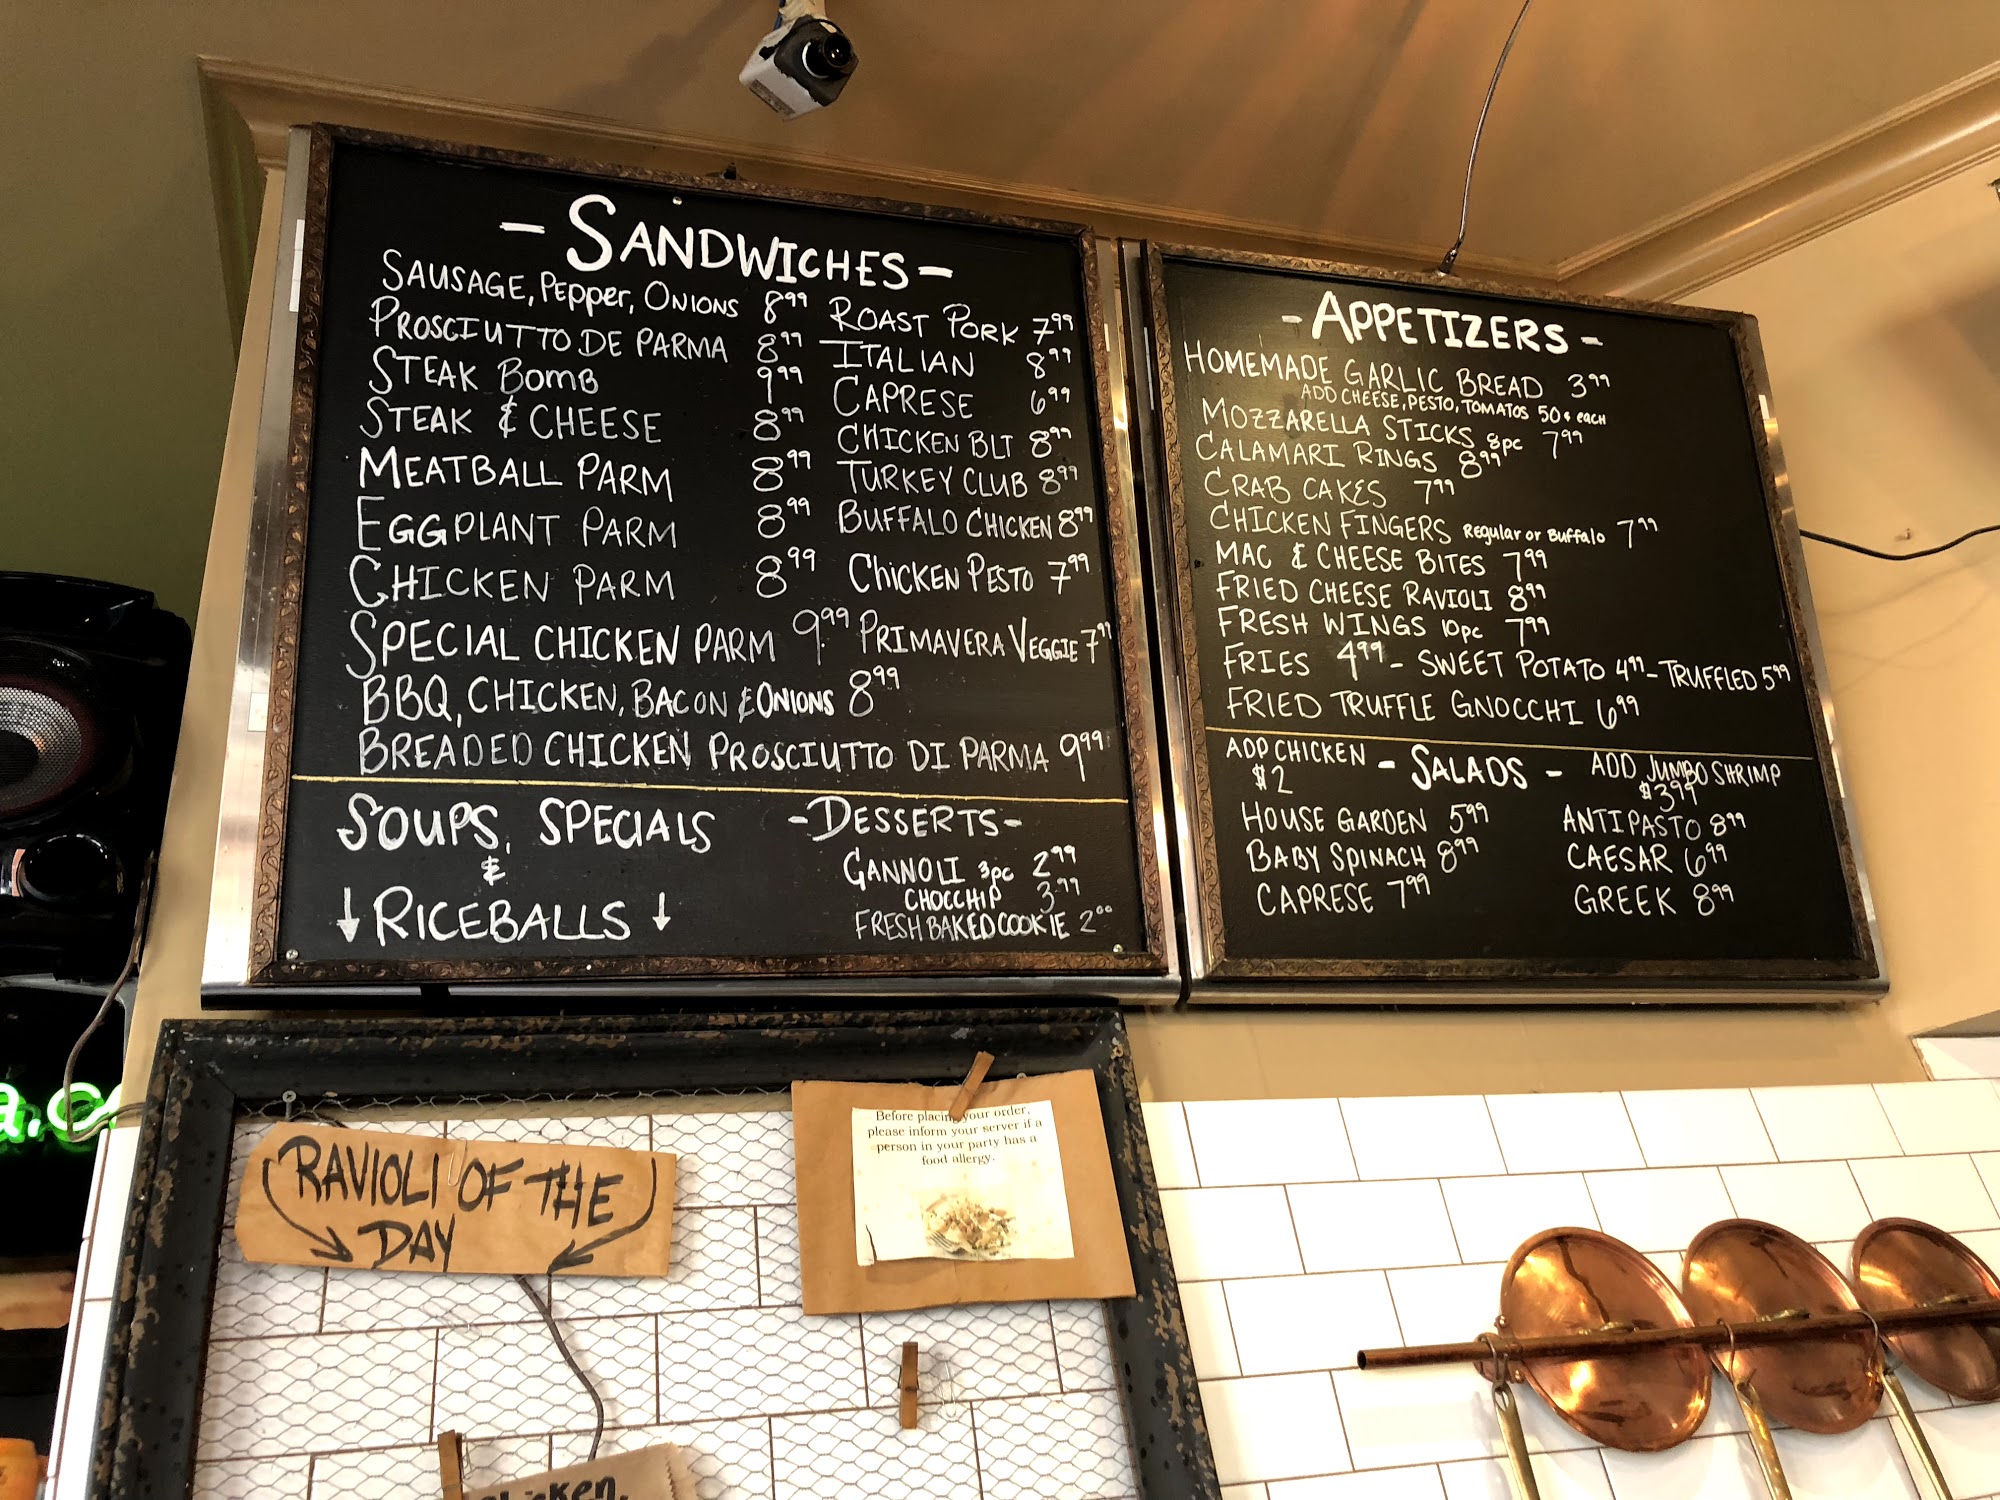 - SANDWICHES -
SAUSAGE, PEPPER, ONIONS 8.99
PROSCIUTTO DE PARMA 8.99
STEAK BOMB 9.99
STEAK & CHEESE 8.99
MEATBALL PARM 8.99
EGGPLANT PARM 8.99
CHICKEN PARM 8.99
SPECIAL CHICKEN PARM 9.99
BBQ, CHICKEN, BACON & ONIONS 8.99
BREADED CHICKEN PROSCIUTTO DI PARMA 9.99
ROAST PORK 7.99
ITALIAN 8.99
CAPRESE 6.99
CHICKEN BLT 8.99
TURKEY CLUB 8.99
BUFFALO CHICKEN 8.99
CHICKEN PESTO 7.99
PRIMAVERA VEGGIE 7.99
SOUPS, SPECIALS
&
↓ RICEBALLS ↓
- DESSERTS -
CANNOLI 3pc 2.99
CHOCCHIP 3.99
FRESH BAKED COOKIE 2.00
- APPETIZERS -
HOMEMADE GARLIC BREAD 3.99
ADD CHEESE, PESTO, TOMATOS 50¢ each
MOZZARELLA STICKS 8pc 7.99
CALAMARI RINGS 8.99
CRAB CAKES 7.99
CHICKEN FINGERS Regular or Buffalo 7.99
MAC & CHEESE BITES 7.99
FRIED CHEESE RAVIOLI 8.99
FRESH WINGS 10pc 7.99
FRIES 4.99 - SWEET POTATO 4.99 - TRUFFLED 5.99
FRIED TRUFFLE GNOCCHI 6.99
ADD CHICKEN
$2
- SALADS -
ADD JUMBO SHRIMP
$3.99
HOUSE GARDEN 5.99
BABY SPINACH 8.99
CAPRESE 7.99
ANTIPASTO 8.99
CAESAR 6.99
GREEK 8.99
a.c
RAVIOLI OF THE
DAY
Before placing your order,
please inform your server if a
person in your party has a
food allergy.
Chicken,